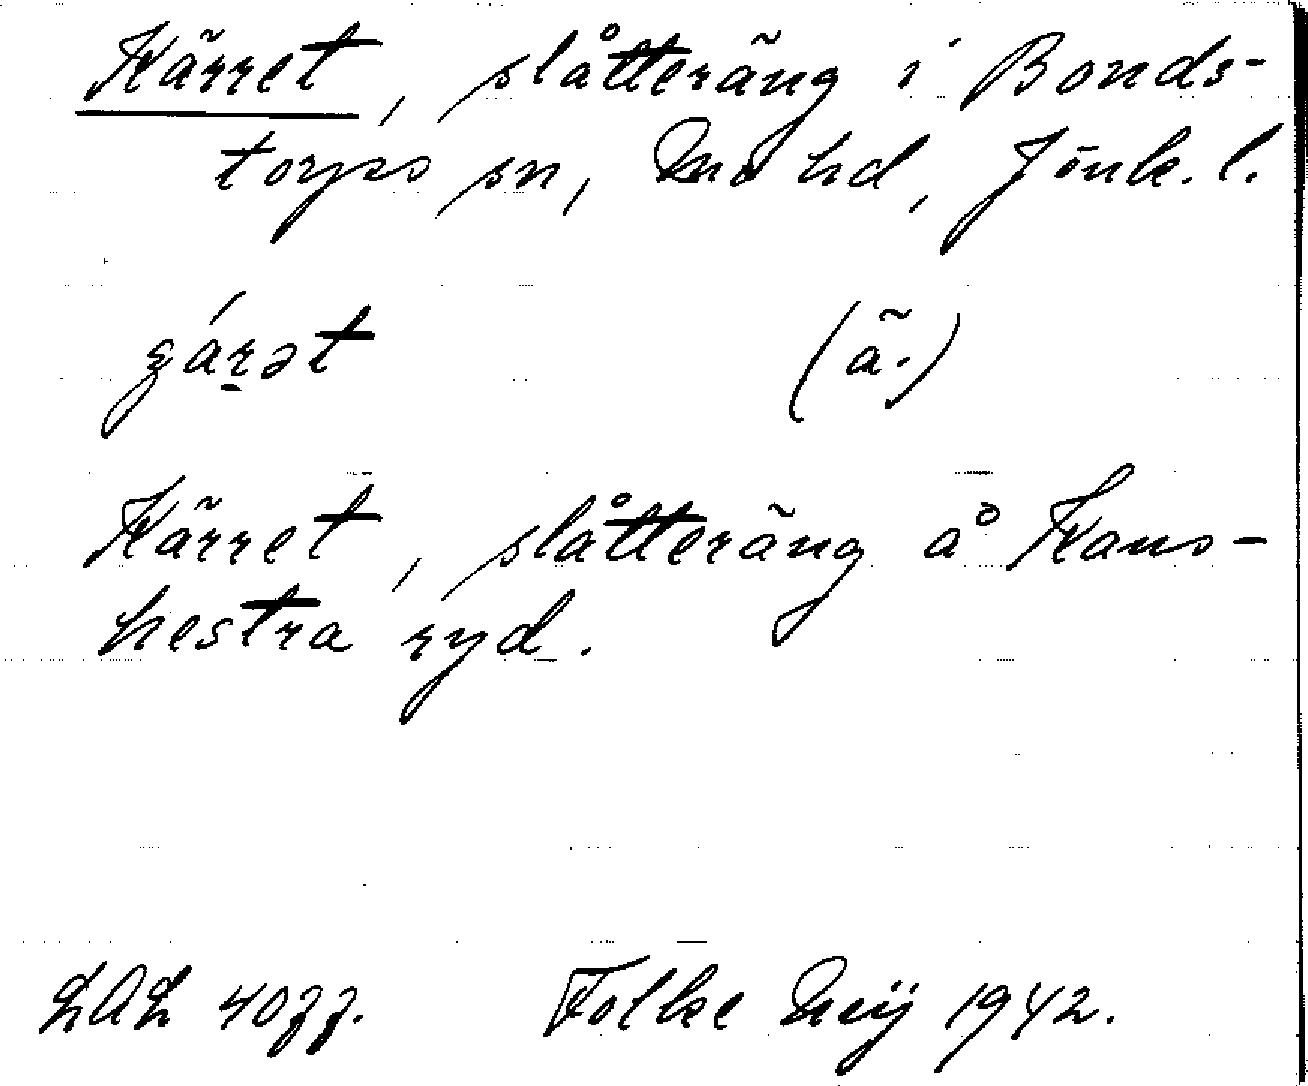 Kärret, slåtteräng i Bonds-
torps sn, Mo hd, Jönk. l.
(ä.)
Kärret, slåtteräng å Kans-
hestra ryd.
LAL 4077. Folke Meÿ 1942.